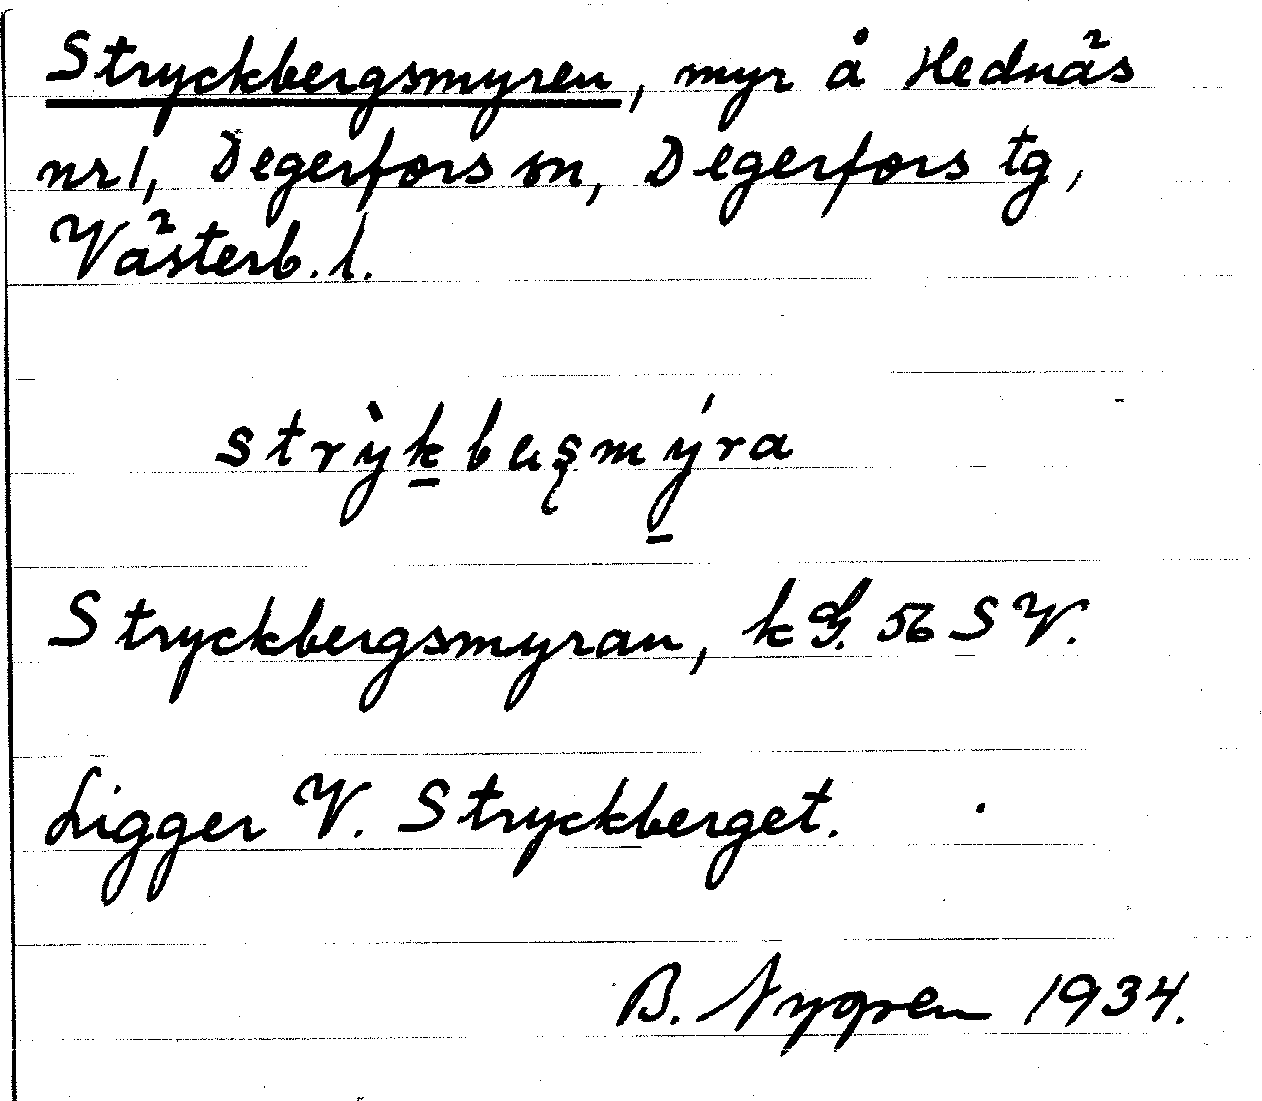 Stryckbergsmyren, myr å Hednäs
nr 1, Degerfors sn, Degerfors tg,
Västerb. l.
Stryckbergsmyran, kG. 56 SV.
Ligger V. Stryckberget.
B. Nygren 1934.